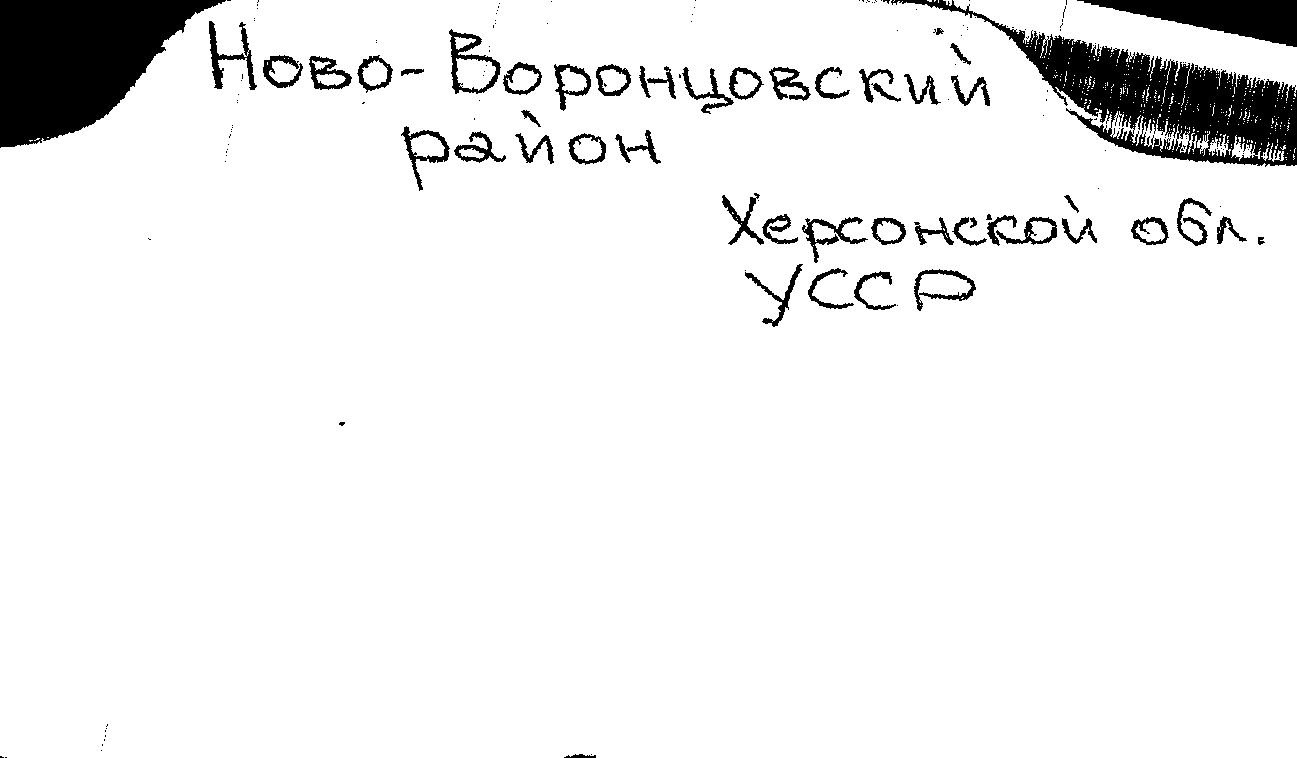 Ново-Воронцовский
район
Херсонской обл.
УССР